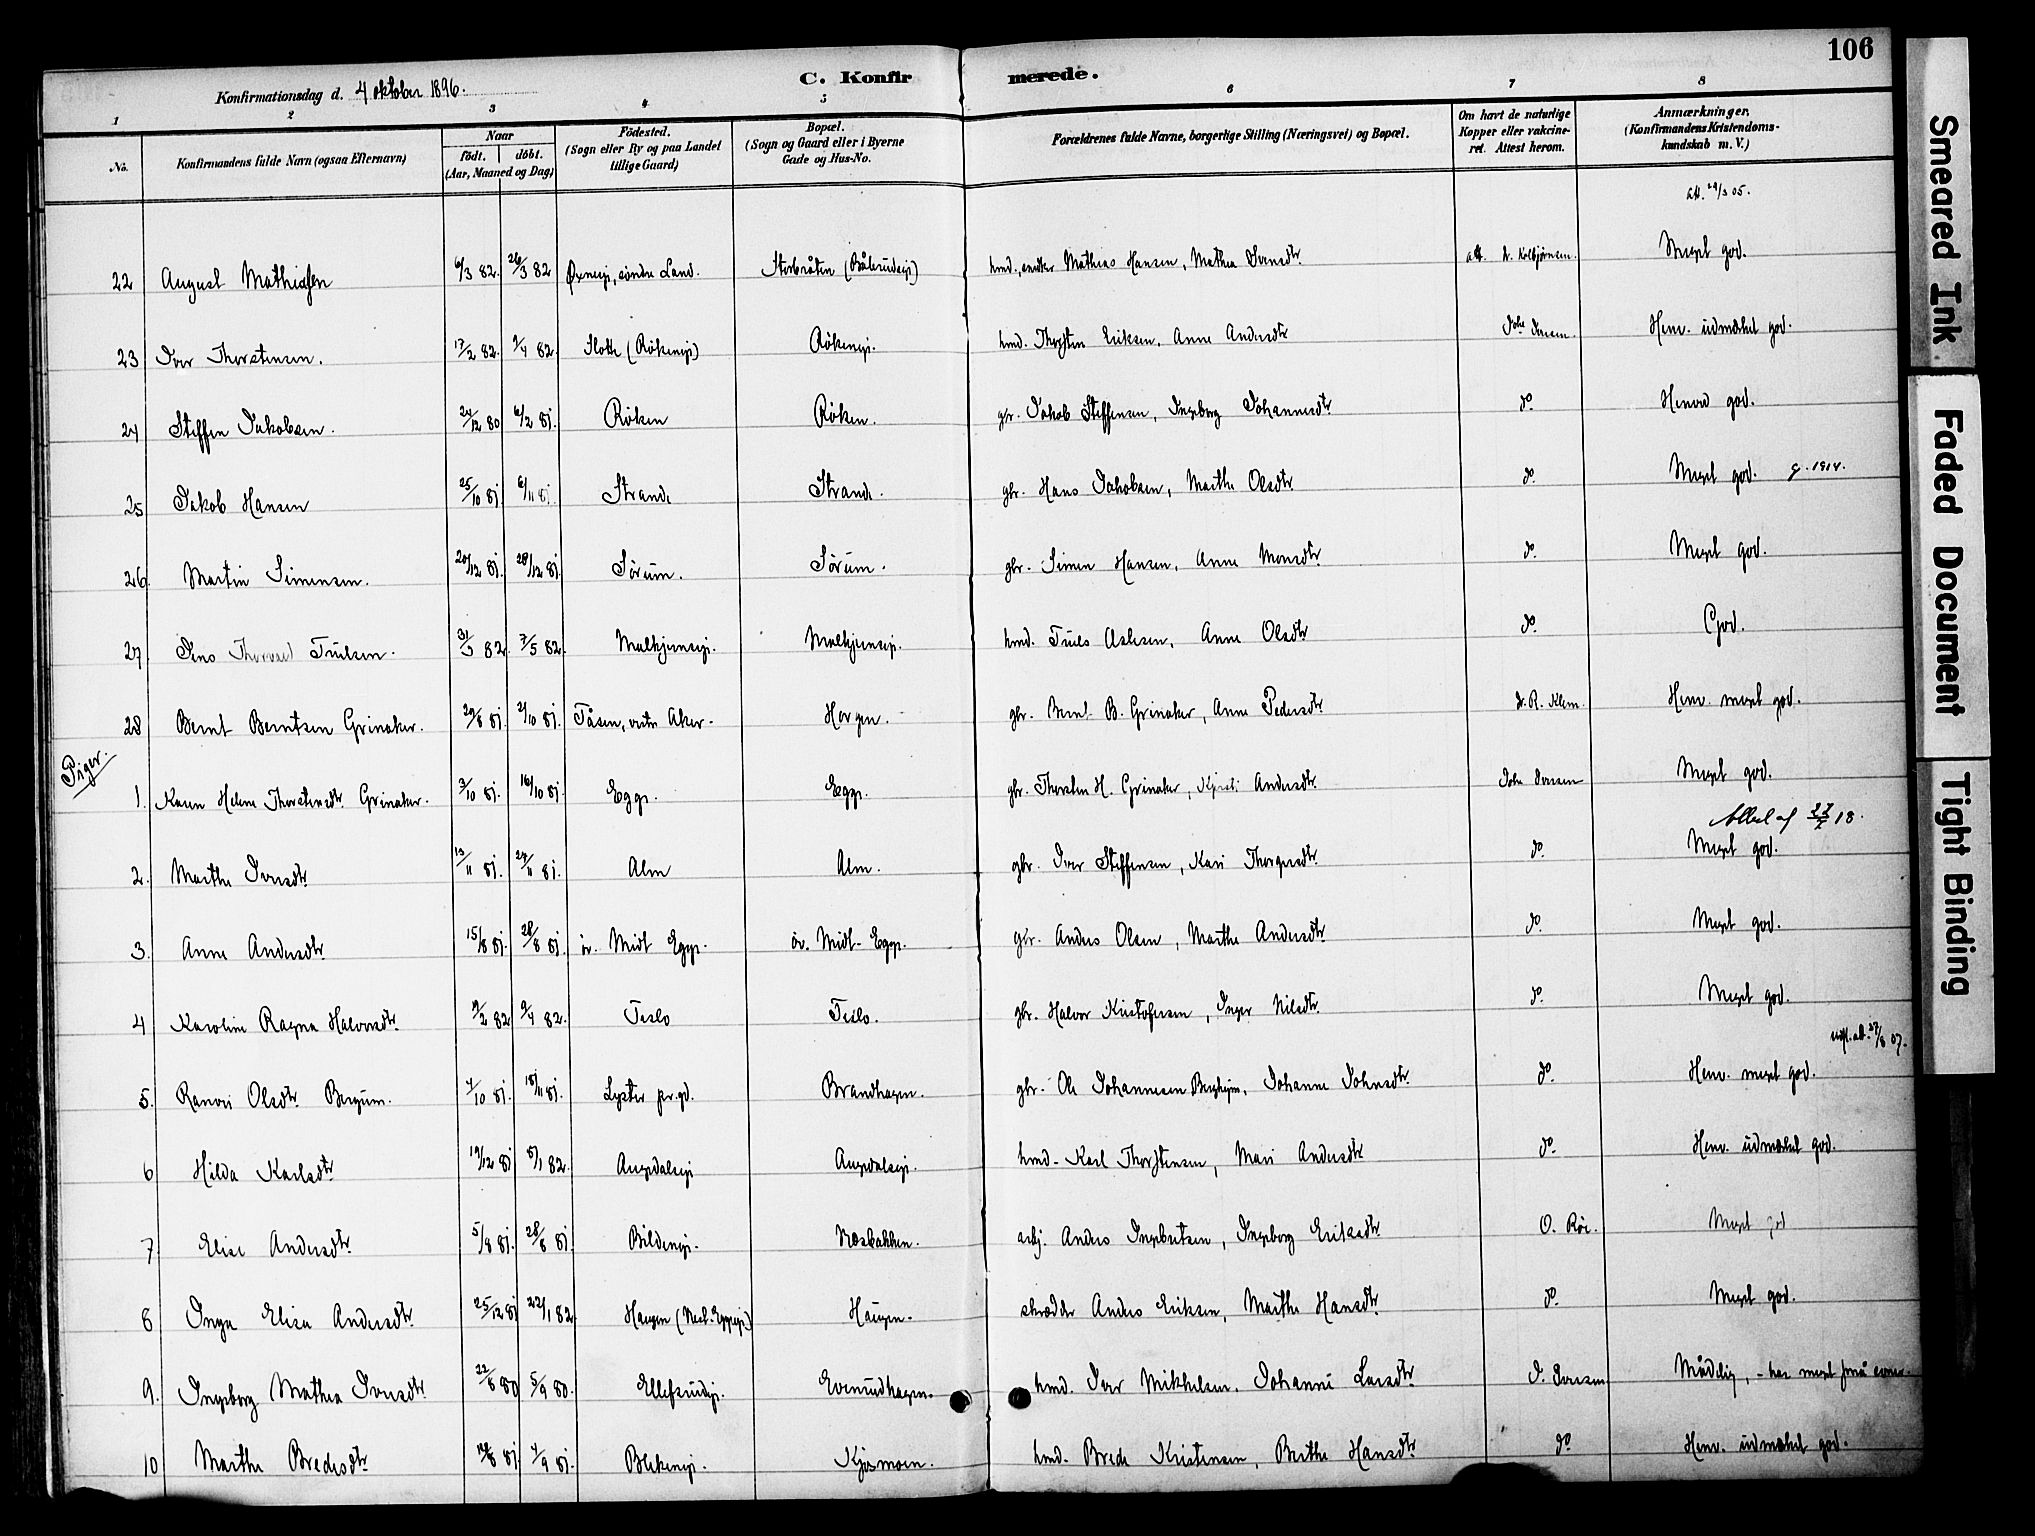 106
C. Konfirmerede.
Konfirmationsdag d. 4 oktober 1896.
1 2 3 4 5 6 7 8
No.
Konfirmandens fulde Navn (ogsaa Efternavn)
Naar
födt. döbt.
(Aar, Maaned og Dag)
Födested.
(Sogn eller By og paa Landet
tillige Gaard)
Bopæl.
(Sogn og Gaard eller i Byerne
Gade og Hus-No.
Forældrenes fulde Navne, borgerlige Stilling (Næringsvei) og Bopæl.
Om havt de naturlige
Kopper eller vakcine-
ret. Attest herom.
Anmærkninger.
(Konfirmandens Kristendoms-
kundskab m. V.)
22 August Mathiasen 6/3 82. 26/3 82 søndre Land. hmd., Mathias Hansen, Mathea Iversdtr Meget god.
23 Iver Thorstensen. 17/2 82. 9/4 82. Røkeneje. hmd. Thorsten Eriksen, Anne Andersdtr John Iversen. Henv. udmærket god.
24 Steffen Jakobsen. 24/12 80 6/2 81. Røken Røken. gbr. Jakob Steffensen, Ingeborg Johannesdtr do Henved god.
25 Jakob Hansen 25/10 81 6/11 81. Strande Strande. gbr. Hans Jakobsen, Marthe Olsdtr do Meget god. g. 1914.
26. Martin Simensen. 20/12 81. 28/12 81. Sørum. Sørum. gbr. Simen Hansen, Anne Monsdtr do Meget god.
27. Jens Thorvald Truelsen. 82. 7/5 82. hmd. Truels Aslesen, Anne Olsdtr do God.
28 Bernt Berntsen Grinaker. 29/8 81. 2/10 81. Tåsen, vestre Aker. Horgen. gbr. Bernt B. Grinaker, Anne Pedersdtr Dr. R. Klem. Henv. meget god.
Piger.
1. Karen Helene Thorstensdtr Grinaker. 3/10 81. 16/10 81. Egge. Egge. gbr. Thorsten H. Grinaker, Kjersti Andersdtr John Iversen Meget god.
18.
2. Marthe Iversdtr 13/11 81. 27/11 81. Alm Alm. gbr. Iver Steffensen, Kari Thorgersdtr do Meget god.
3. Anne Andersdtr 15/8 81. 28/8 81. ör. Midt Egge. ör. Midt-Egge. gbr. Anders Olsen, Marthe Andersdtr do Meget god.
4 Karoline Ragna Halvorsdtr 9/2 82 9/4 82. Teslo Teslo. gbr. Halvor Kristofersen, Inger Nilsdtr do Meget god.
5. Ranvei Olsdtr Bergum. 4/10 81. Lyster pr.gd. Brandhagen. gbr. Ole Johannesen Bergheim, Johanne Johnsdtr do Henv. meget god.
6 Hilda Karlsdtr 19/12 81 8/1 82. Augedalseje Augedalseje. hmd. Karl Thorstensen, Mari Andersdtr do Henv. udmærket god.
7 Elise Andersdtr 5/8 81. 28/8 81. Bildeneje. Næsbakken. arbj. Anders Ingebretsen, Ingeborg Eriksdtr O. Röe. Meget god
8 Inga Elisa Andersdtr 25/12 81 22/1 82. Haugen (Nest-Eggeeje) Haugen. skrædder Anders Eriksen, Marthe Hansdtr do Meget god.
9. Ingeborg Mathea Iversdtr 22/8 80 5/9 80. Ellefsrudeje. Evenrudhagen. hmd. Iver Mikkelsen, Johanne Larsdtr J. Iversen Mådelig, - har meget små evner.
10 Marthe Bredesdtr 14/8 81. 4/9 81. Blekeneje. Kjösmoen. hmd. Brede Kristensen, Berthe Hansdtr do Henv. udmærket god.
Smeared Ink
Faded Document
Tight Binding